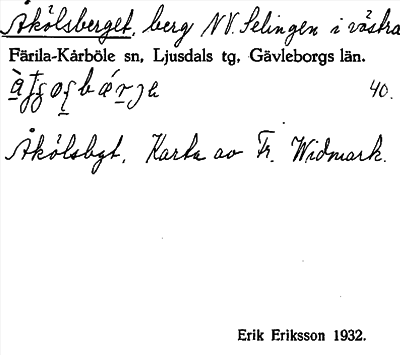 Åkölsberget, berg NV. Selingen i västra
Färila-Kårböle sn, Ljusdals tg, Gävleborgs län.
40.
Åkölsbgt, Karta av Fr. Widmark.
Erik Eriksson 1932.